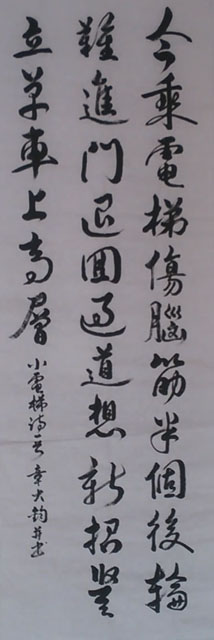 今乘電梯傷腦筋半個後輪
難進門退回過道想新招豎
立單車上高層
小電梯詩一首 章大鈞并書